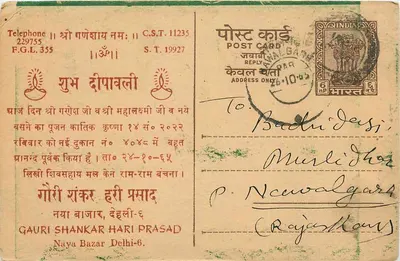 Telephone || श्री गणेशाय नमः || C.S.T. 11235
229755
F.G.L. 355 ||ॐ|| S.T. 19927
शुभ दीपावली
आज दिन श्री गणेश जी व श्री महालक्ष्मी जी व नये
बसने का पूजन कार्तिक कृष्णा १४ सं० २०२२
रविवार को नई दुकान नं० ४०४८ में बहुत
आनन्द पूर्वक किया है। ता० २४-१०-६५
लिखी शिवसहाय मल केन राम-राम बंचना।
गौरी शंकर हरी प्रसाद
नया बाजार, देहली-६
GAURI SHANKAR HARI PRASAD
Naya Bazar Delhi-6.
पोस्ट कार्ड
POST CARD
जवाबी
REPLY
केवल पता
ADDRESS ONLY
INDIA
भारत
NAWALGARH
26-10-65
To:
Badridas
Murlidhar
P. Nawalgarh
(Rajasthan)